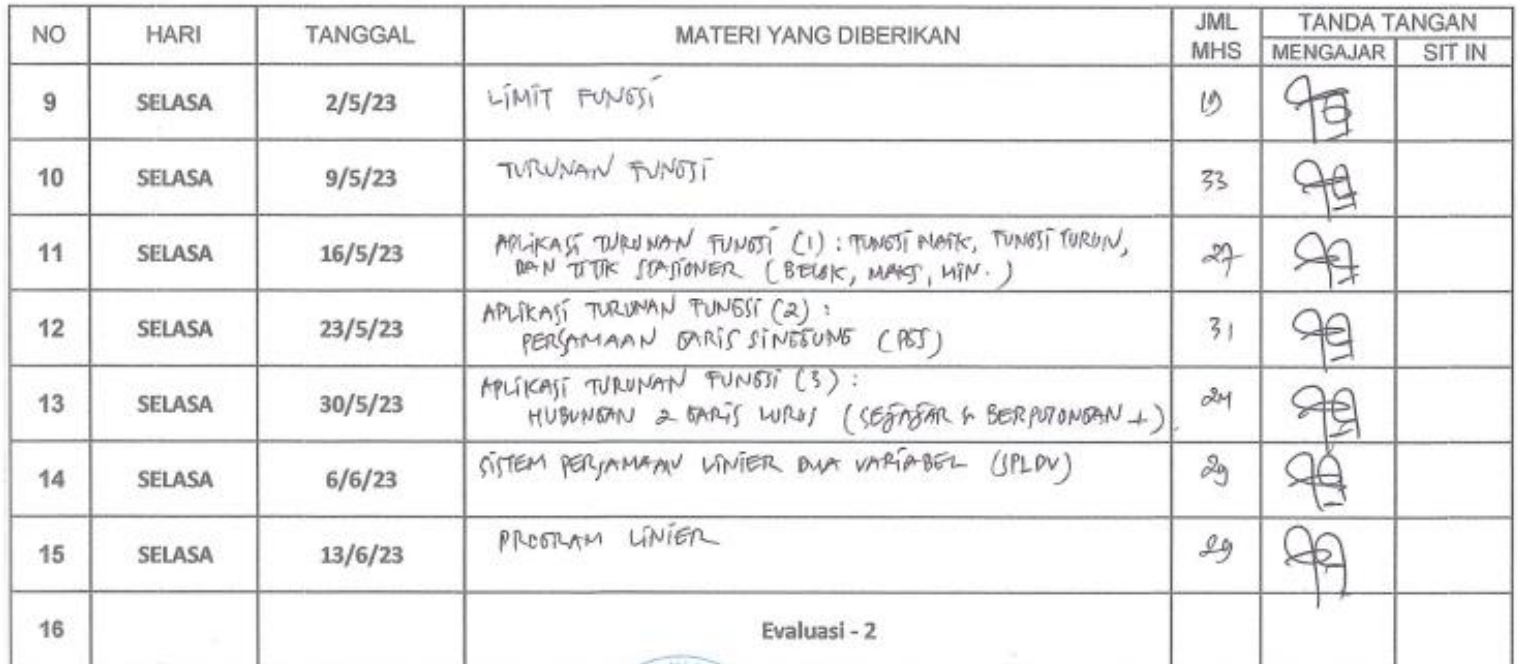 NO HARI TANGGAL MATERI YANG DIBERIKAN JML MHS TANDA TANGAN
MENGAJAR SIT IN
9 SELASA 2/5/23 LIMIT FUNGSI 19
10 SELASA 9/5/23 TURUNAN FUNGSI 33
11 SELASA 16/5/23 APLIKASI TURUNAN FUNGSI (1) : FUNGSI NAIK, FUNGSI TURUN,
DAN TITIK STASIONER (BELOK, MAKS, MIN.) 27
12 SELASA 23/5/23 APLIKASI TURUNAN FUNGSI (2) :
PERSAMAAN GARIS SINGGUNG (PGS) 31
13 SELASA 30/5/23 APLIKASI TURUNAN FUNGSI (3) :
HUBUNGAN 2 GARIS LURUS (SEJAJAR & BERPOTONGAN ⊥) 24
14 SELASA 6/6/23 SISTEM PERSAMAAN LINIER DUA VARIABEL (SPLDV) 29
15 SELASA 13/6/23 PROGRAM LINIER 29
16 Evaluasi - 2